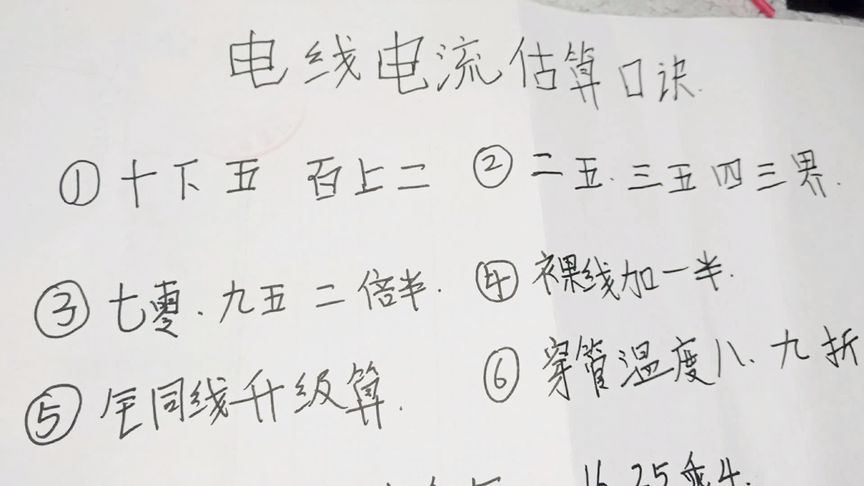 电线电流估算口诀.
① 十下五 百上二 ② 二五.三五四三界.
③ 七零.九五二倍半. ④ 裸线加一半.
⑤ 全同线升级算. ⑥ 穿管温度八.九折
16 25乘4.